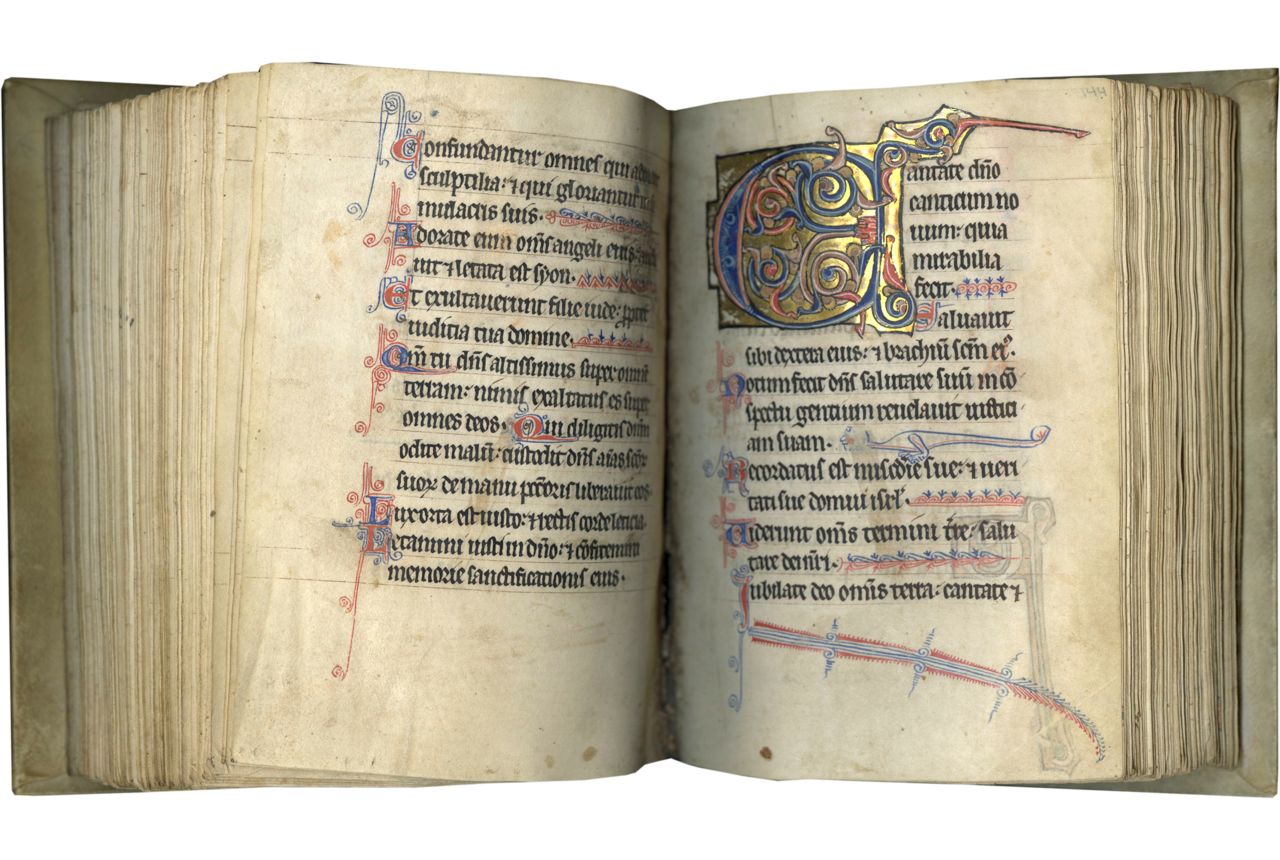 Confundantur omnes qui ado
sculptilia: ⁊ qui gloriantur
mulacris suis.
Adorate eum oms̄ angeli eius:
uit ⁊ letata est syon.
Et exultauerunt filie iude: ꝓpter
iudicia tua domine.
Qm̄ tu dn̄s altissimus super omnē
terram: nimis exaltatus es super
omnes deos. Qui diligitis dn̄m
odite malū: custodit dn̄s aīas scōꝝ
suoꝝ de manu pcc̄oris liberauit eos.
Lux orta est iusto: ⁊ rectis corde leticia.
Letamini iusti in dn̄o: ⁊ cōfitemini
memorie sanctificationis eius.
144
Cantate dn̄o
canticum no
uum: quia
mirabilia
fecit.
Saluauit
sibi dextera eius: ⁊ brachiū scm̄ eiꝰ.
Notum fecit dn̄s salutare suū in cō
spectu gentium reuelauit iustici
am suam.
Recordatus est miscd̄ie sue: ⁊ ueri
tati sue domui isrl̄.
Uiderunt oms̄ termini tr̄e: salu
tare dei nr̄i.
Iubilate deo oms̄ terra: cantate ⁊